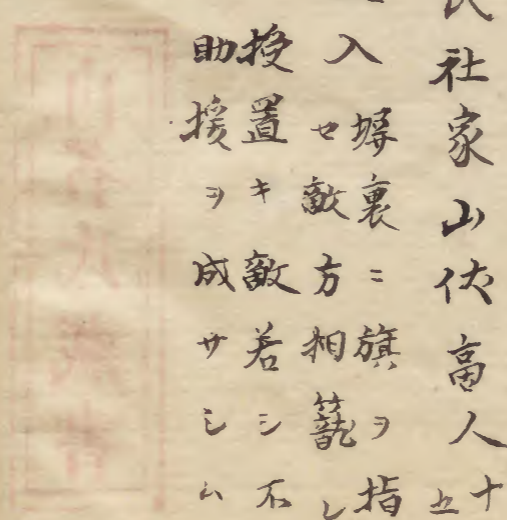 社家山伏商人
入
塀裏ニ旗ヲ指
セ敵方相籠レ
授置キ敵若シ不
助援ヲ成サシム